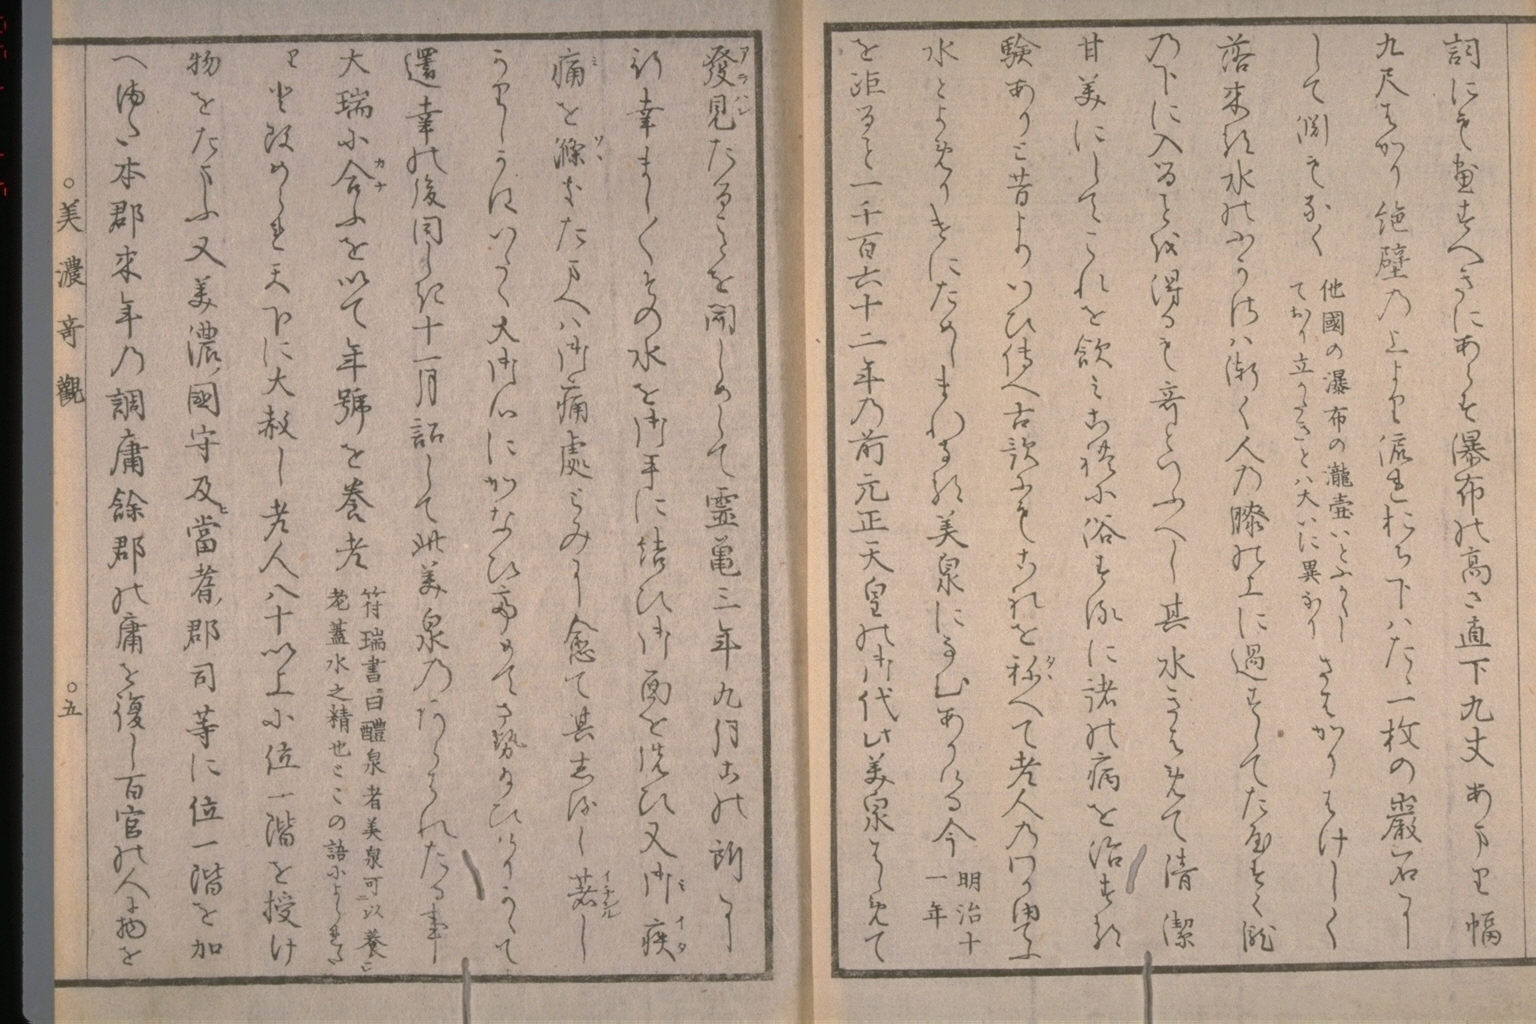 詞にも畫すへきにあらす瀑布の高さ直下九丈あまり幅
九尺はかり絶壁の上より流れおち下はたゝ一枚の巖石に
して淵もなく
他國の瀑布の瀧壺いとふかし
てより立かたきとハ大いに異なり
さはかりはけしく
落來る水のふかさハ漸く人の膝の上に過すしてたやすく瀧
の下に入ることを得るも奇といふへし其水きはめて清潔
甘美にしてこれを飲み これに浴する に諸の病を治する
験ありと昔よりいひ傳へ古歌にもこれを称へて老人の
水とよめり にためしまれなる美泉になむありける今
明治十
一年
を距ること一千百六十二年の前元正天皇の御代此美泉はしめて
發見たることを聞しめして靈亀三年九月この所に
行幸ましましその水を御手に結ひ御面を洗ひ又御疾
痛を滌きたまへハ御痛處 みに愈て其志るし著し
かりしかはいたく大御心にかなひ めてさせ給ひけりかくて
還幸の後同しき十一月詔して此美泉の たる事
大瑞に合ふを以て年號を養老
符瑞書曰醴泉者美泉可以養
老蓋水之精也とこの語によられた
りと改められ天下に大赦し老人八十以上に位一階を授け
物をたまふ又美濃國守及當耆郡司等に位一階を加
へ 本郡來年の調庸餘郡の庸を復し百官の人に物を
○美濃奇觀
○五